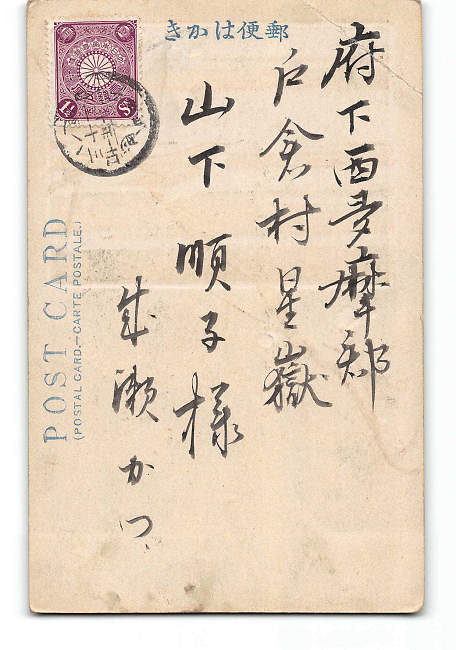 郵便はかき
府下西多摩郡
戸倉村星嶽
山下順子様
成瀬かつ
POST CARD
(POSTAL CARD.—CARTE POSTALE.)